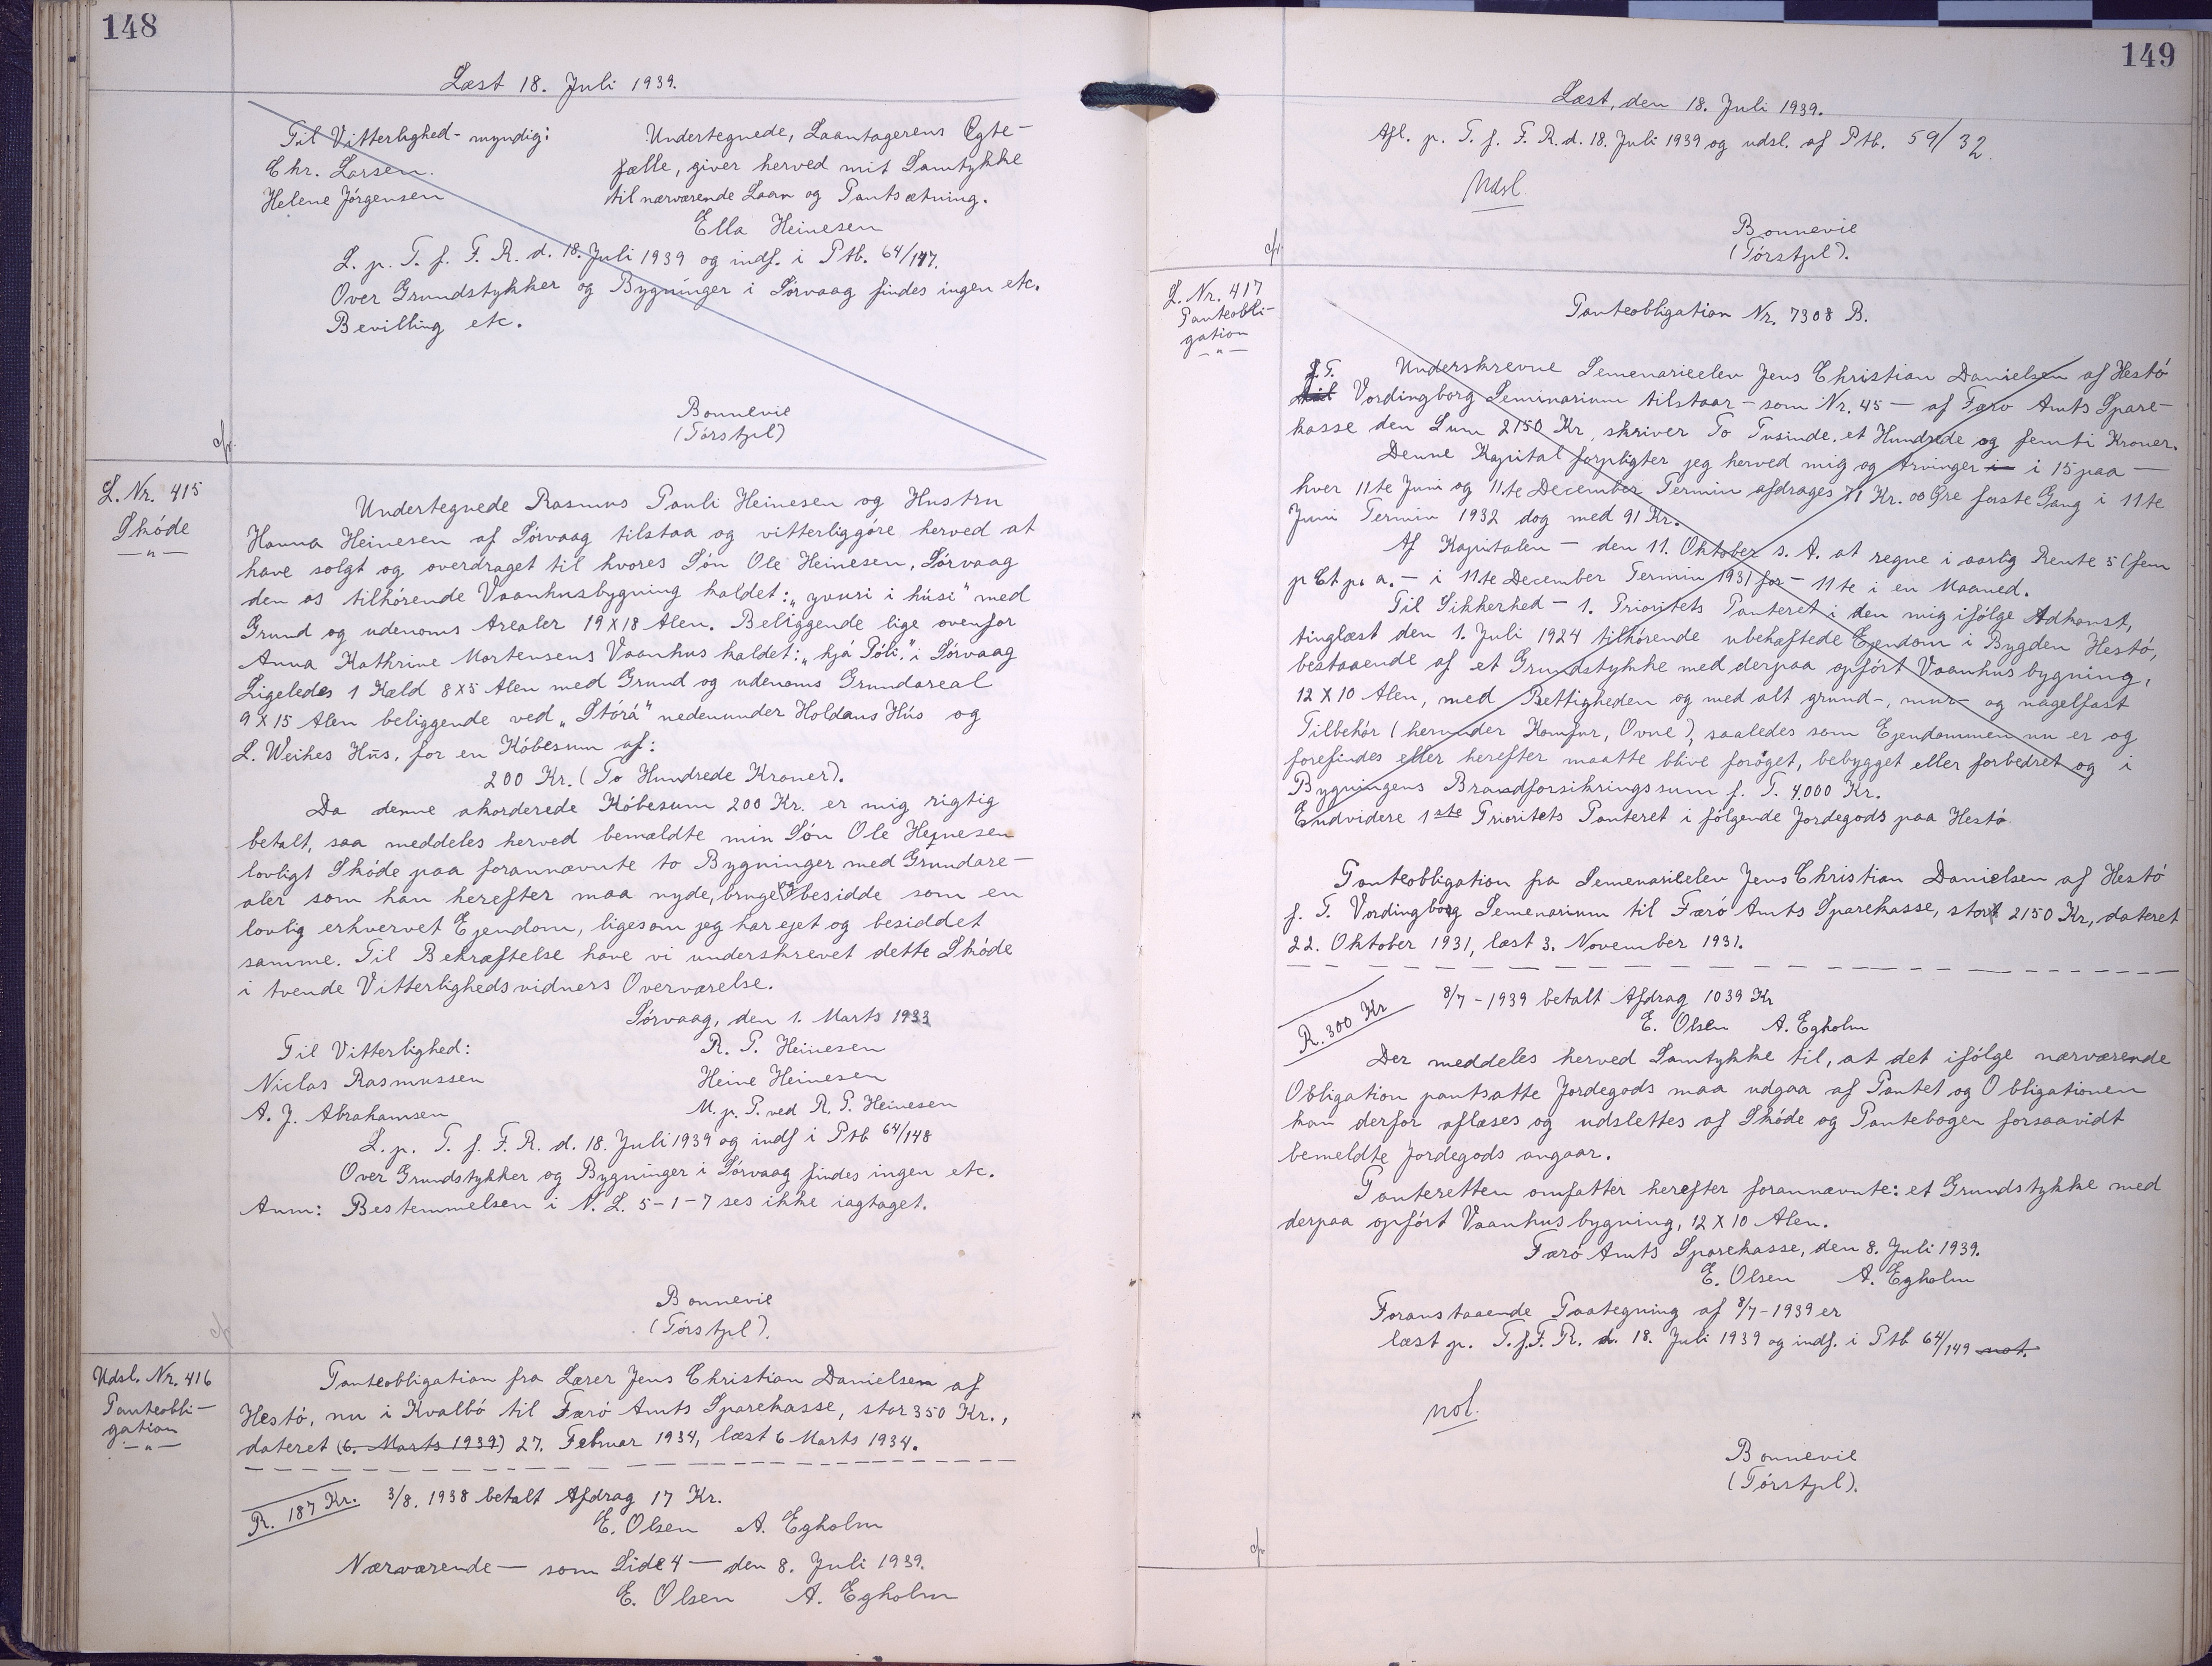 148
Læst 18. Juli 1939.
Til Vitterlighed - myndig:
Chr. Larsen.
Helene Jörgensen
Undertegnede, Laantagerens Egte-
fælle, giver herved mit Samtykke
til nærværende Laan og Pantsætning.
Ella Heinesen
L. p. T. f. F. R. d. 18. Juli 1939 og indf. i Ptb. 64/147.
Over Grundstykker og Bygninger i Sörvaag findes ingen etc.
Bevilling etc.
Bonnevie
(Tórshpl)
cfr.
L. Nr. 415
Skóde
— " —
Undertegnede Rasmus Pauli Heinesen og Hustru
Hanna Heinesen af Sórvaag tilstaa og vitterliggóre herved at
have solgt og overdraget til hvores Són Ole Heinesen, Sórvaag
den os tilhórende Vaanhusbygning kaldet: „yvuri i húsi" med
Grund og udenoms Arealer 19 X 18 Alen. Beliggende lige ovenfor
Anna Kathrine Mortensens Vaanhus kaldet: „hjá Póli", i Sórvaag
Ligeledes 1 Kæld 8 X 5 Alen med Grund og udenoms Grundareal
9 X 15 Alen beliggende ved „Stórá" nedenunder Holdans Hús og
L. Weihes Hús, for en Kóbesum af:
200 Kr. (To Hundrede Kroner).
Da denne akorderede Kóbesum 200 Kr. er mig rigtig
betalt, saa meddeles herved bemældte min Són Ole Hejnesen
lovligt Skóde paa forannævnte to Bygninger med Grundare-
aler som han herefter maa nyde, bruge og besidde som en
lovlig erhvervet Ejendom, ligesom jeg har ejet og besiddet
samme. Til Bekræftelse have vi underskrevet dette Skóde
i tvende Vitterlighedsvidners Overværelse.
Sórvaag, den 1. Marts 1933
Til Vitterlighed:
Niclas Rasmussen
A. J. Abrahamsen
R. P. Heinesen
Heine Heinesen
M. p. P. ved R. P. Heinesen
L. p. T. f. F. R. d. 18. Juli 1939 og indf i Ptb 64/148
Over Grundstykker og Bygninger i Sórvaag findes ingen etc.
Anm: Bestemmelsen i N. L. 5-1-7 ses ikke iagtaget.
Bonnevie
(Tórshpl).
cfr
Udsl. Nr. 416
Panteobli-
gation
— " —
Panteobligation fra Lærer Jens Christian Danielsen af
Hestó, nu i Kvalbó til Færó Amts Sparekasse, stor 350 Kr.,
dateret (6. Marts 1939) 27. Februar 1934, læst 6 Marts 1934.
R. 187 Kr.
3/8. 1938 betalt Afdrag 17 Kr.
E. Olsen A. Egholm
Nærværende — som Side 4 — den 8. Juli 1939.
E. Olsen A. Egholm
149
Læst, den 18. Juli 1939.
Afl. p. T. f. F. R. d. 18. Juli 1939 og udsl. af Ptb. 59/32.
Udsl.
Bonnevie
(Tórshpl).
cfr.
L. Nr. 417
Panteobli-
gation
— " —
Panteobligation Nr. 7308 B.
Underskrevne Semenarieelev Jens Christian Danielsen af Hestó
f. T. Vordingborg Seminarium tilstaar - som Nr. 45 - af Færo Amts Spare-
kasse den Sum 2150 Kr, skriver To Tusinde, et Hundrede og femti Kroner.
Denne Kapital forpligter jeg herved mig og Arvinger i i 15 paa —
hver 11te Juni og 11te December Termin afdrages 71 Kr. 00 Øre første Gang i 11te
Juni Termin 1932 dog med 91 Kr.
Af Kapitalen — den 11. Oktober s. A. at regne i aarlig Rente 5 (fem
p Ct p. a. - i 11te December Termin 1931 for - 11te i en Maaned.
Til Sikkerhed - 1. Prioritets Panteret i den mig ifólge Adkomst,
tinglæst den 1. Juli 1924 tilhórende ubehæftede Ejendom i Bygden Hestó,
bestaaende af et Grundstykke med derpaa opfórt Vaanhusbygning,
12 X 10 Alen, med Rettigheden og med alt grund-, mur- og nagelfast
Tilbehór (herunder Komfur, Ovne), saaledes som Ejendommen nu er og
forefindes eller herefter maatte blive foróget, bebygget eller forbedret og i
Bygningens Brandforsikringssum f. T. 4.000 Kr.
Endvidere 1ste Prioritets Panteret i fólgende Jordegods paa Hestó.
Panteobligation fra Semenarieelev Jens Christian Danielsen af Hestó
f. T. Vordingborg Semenarium til Færó Amts Sparekasse, stor 2150 Kr, dateret
22. Oktober 1931, læst 3. November 1931.
R. 300 Kr
8/7 - 1939 betalt Afdrag 1039 Kr
E. Olsen A. Egholm
Der meddeles herved Samtykke til, at det ifólge nærværende
Obligation pantsatte Jordegods maa udgaa af Pantet og Obligationen
kan derfor aflæses og udslettes af Skóde og Pantebogen forsaavidt
bemeldte Jordegods angaar.
Panteretten omfatter herefter forannævnte: et Grundstykke med
derpaa opfórt Vaanhusbygning, 12 X 10 Alen.
Færó Amts Sparekasse, den 8. Juli 1939.
E. Olsen A. Egholm
Foranstaaende Paategning af 8/7 - 1939 er
læst p. T. f. F. R. d. 18. Juli 1939 og indf. i Ptb 64/149 not.
not.
Bonnevie
(Tórshpl).
cfr